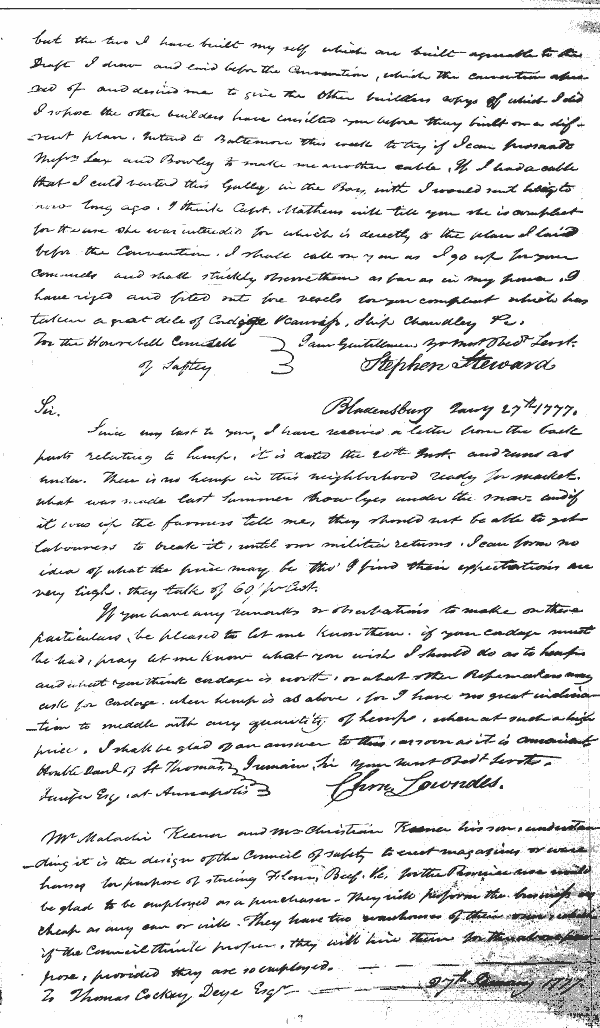 but the two I have built my self which are built agreable to the
Draft I drew and laid before the Convention, which the convention
red of and desired me to give the other builders copys of which I did
I sopose the other builders have consilted you before they built on a dif-
rent plan. intend to Baltemore this week to try if I can
Messrs Lux and Bowley to make me another cable, If I had a cable
that I culd this Galley in the Bay, with I would
now long ago. I think Capt. Mathews will tell you she is compleat
for the use she was intended for which is directly to the plan I laid
before the Convention. I shall call on you as I go up for your
Commds and shall strickly observe them as far as in my power. I
have riged and fited out five vesels for you compleat which has
taken a great dele of Cordage Canvass, Ship Chandley &c.
To the Honourbell Counsell I am Gentillmen yr most Obedt Servt.
of Saftey Stephen Steward
Sir. Bladensburg Jany 27th 1777.
Since my last to you, I have received a letter from the back
parts relating to hemp, it is dated the 20th Inst. and runs as
under. There is no hemp in this neighborhood ready for market.
what was made last summer now lyes under the snow, and if
it was up the farmers tell me, they should not be able to get
labourers to break it, until our militia returns. I can form no
idea of what the price may be tho' I find their expectations are
very high. they talk of 60/ pr Cwt.
If you have any remarks or observations to make on these
particulars, be pleased to let me know them. if your cordage must
be had, pray let me know what you wish I should do as to hemp
and what you think cordage is worth, or what other Ropemakers may
ask for Cordage. when hemp is as above, for I have no great inclina-
tion to meddle with any quantity of hemp, when at such a high
price. I shall be glad of an answer to this, as soon as it is convenient
Honble Danl of St Thomas I remain, Sir your most Obedt Servt.
Jenifer Esqr. at Annapolis Chrisr. Lowndes.
Mr Malachi Keener and Mr Christian Keener his son, understan-
ding it is the design of the Council of safety to erect magazines or ware
houses for purpose of storing Flour, Beef, &c. for the Province use would
be glad to be employed as a purchaser. They will perform the business as
cheap as any can or will. They have two warehouses of their own, which
if the Council think proper, they will hire them for the above pur-
pose, provided they are so employed.
To Thomas Cockey Deye Esqr 27th January 1777